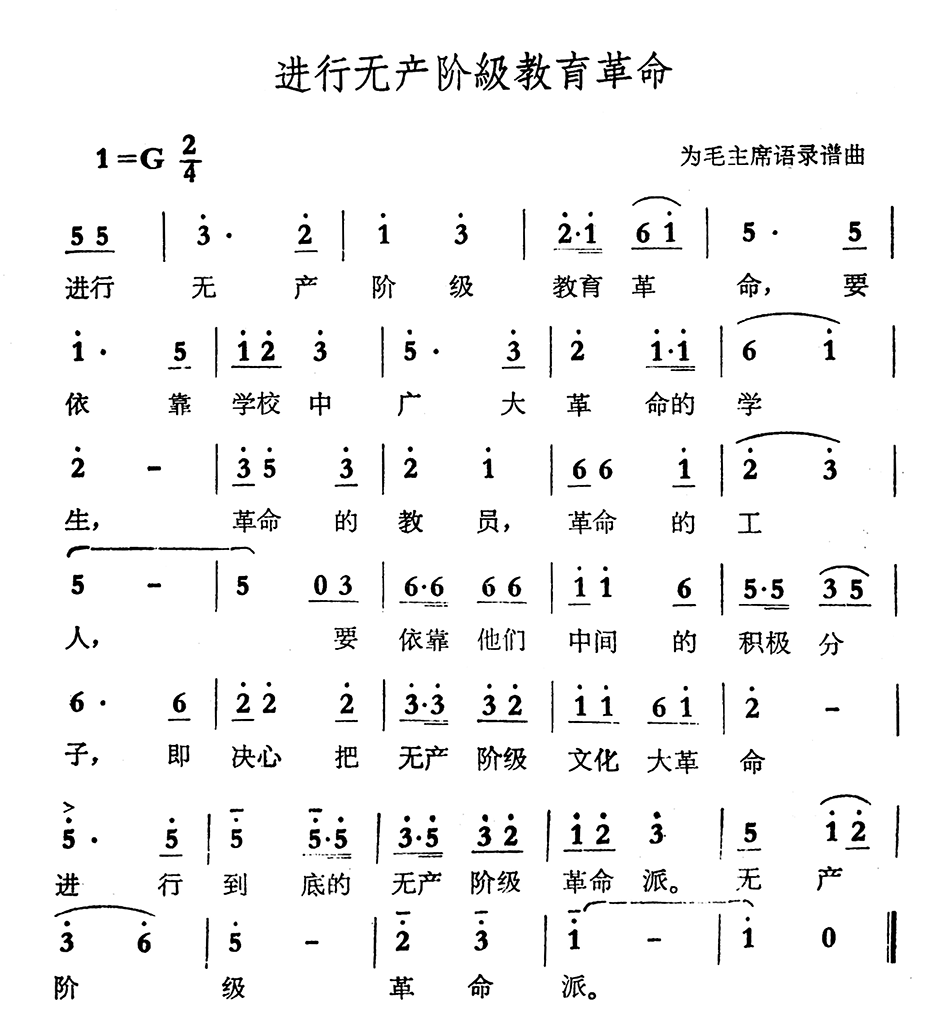 进行无产阶級教育革命
1=G 2/4
为毛主席语录谱曲
5 5 | 3̇ · 2̇ | 1̇ 3̇ | 2̇·1̇ 6 1̇ | 5 · 5 |
进行 无 产 阶 级 教育 革 命, 要
1̇ · 5 | 1̇ 2̇ 3̇ | 5̇ · 3̇ | 2̇ 1̇·1̇ | 6 1̇ |
依 靠 学校 中 广 大 革 命的 学
2̇ - | 3̇ 5̇ 3̇ | 2̇ 1̇ | 6 6 1̇ | 2̇ 3̇ |
生, 革命 的 教 员, 革命 的 工
5 - | 5 0 3 | 6·6 6 6 | 1̇ 1̇ 6 | 5·5 3 5 |
人, 要 依靠 他们 中间 的 积极 分
6 · 6 | 2̇ 2̇ 2̇ | 3̇·3̇ 3̇ 2̇ | 1̇ 1̇ 6 1̇ | 2̇ - |
子, 即 决心 把 无产 阶级 文化 大革 命
>
5̇ · 5̇ | 5̇ 5̇·5̇ | 3̇·5̇ 3̇ 2̇ | 1̇ 2̇ 3̇ | 5 1̇ 2̇ |
进 行 到 底的 无产 阶级 革命 派。 无 产
3̇ 6̇ | 5̇ - | 2̇ 3̇ | 1̇ - | 1̇ 0 ‖
阶 级 革 命 派。